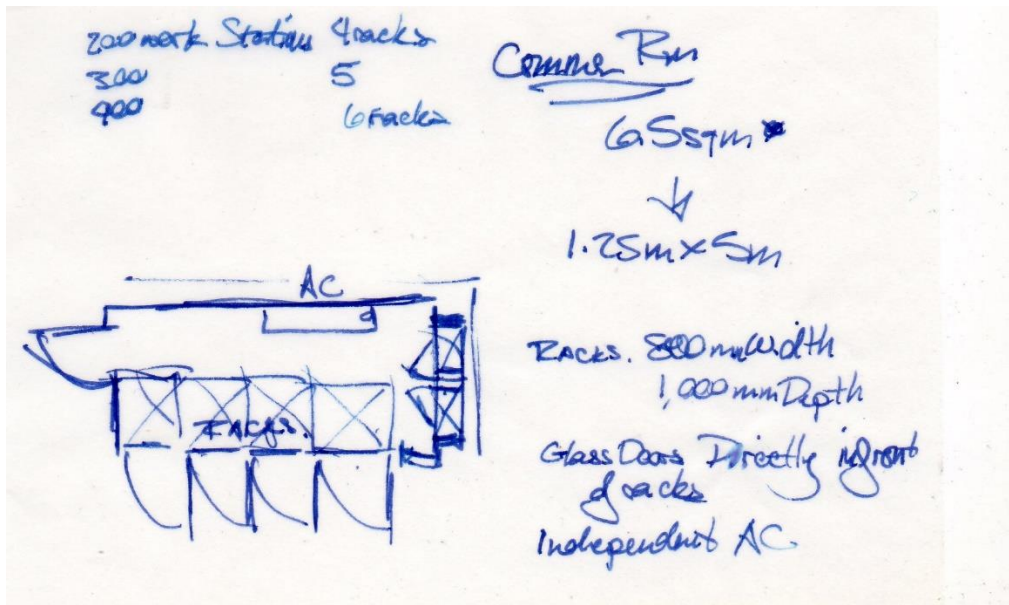 200 work Stations 4racks
300 5
400 6racks
Comms Rm
6.5sqm
1.25m x 5m
AC
RACKS.
RACKS. 800mm Width
1,000mm Depth
Glass Doors Directly infront
of racks
Independent AC